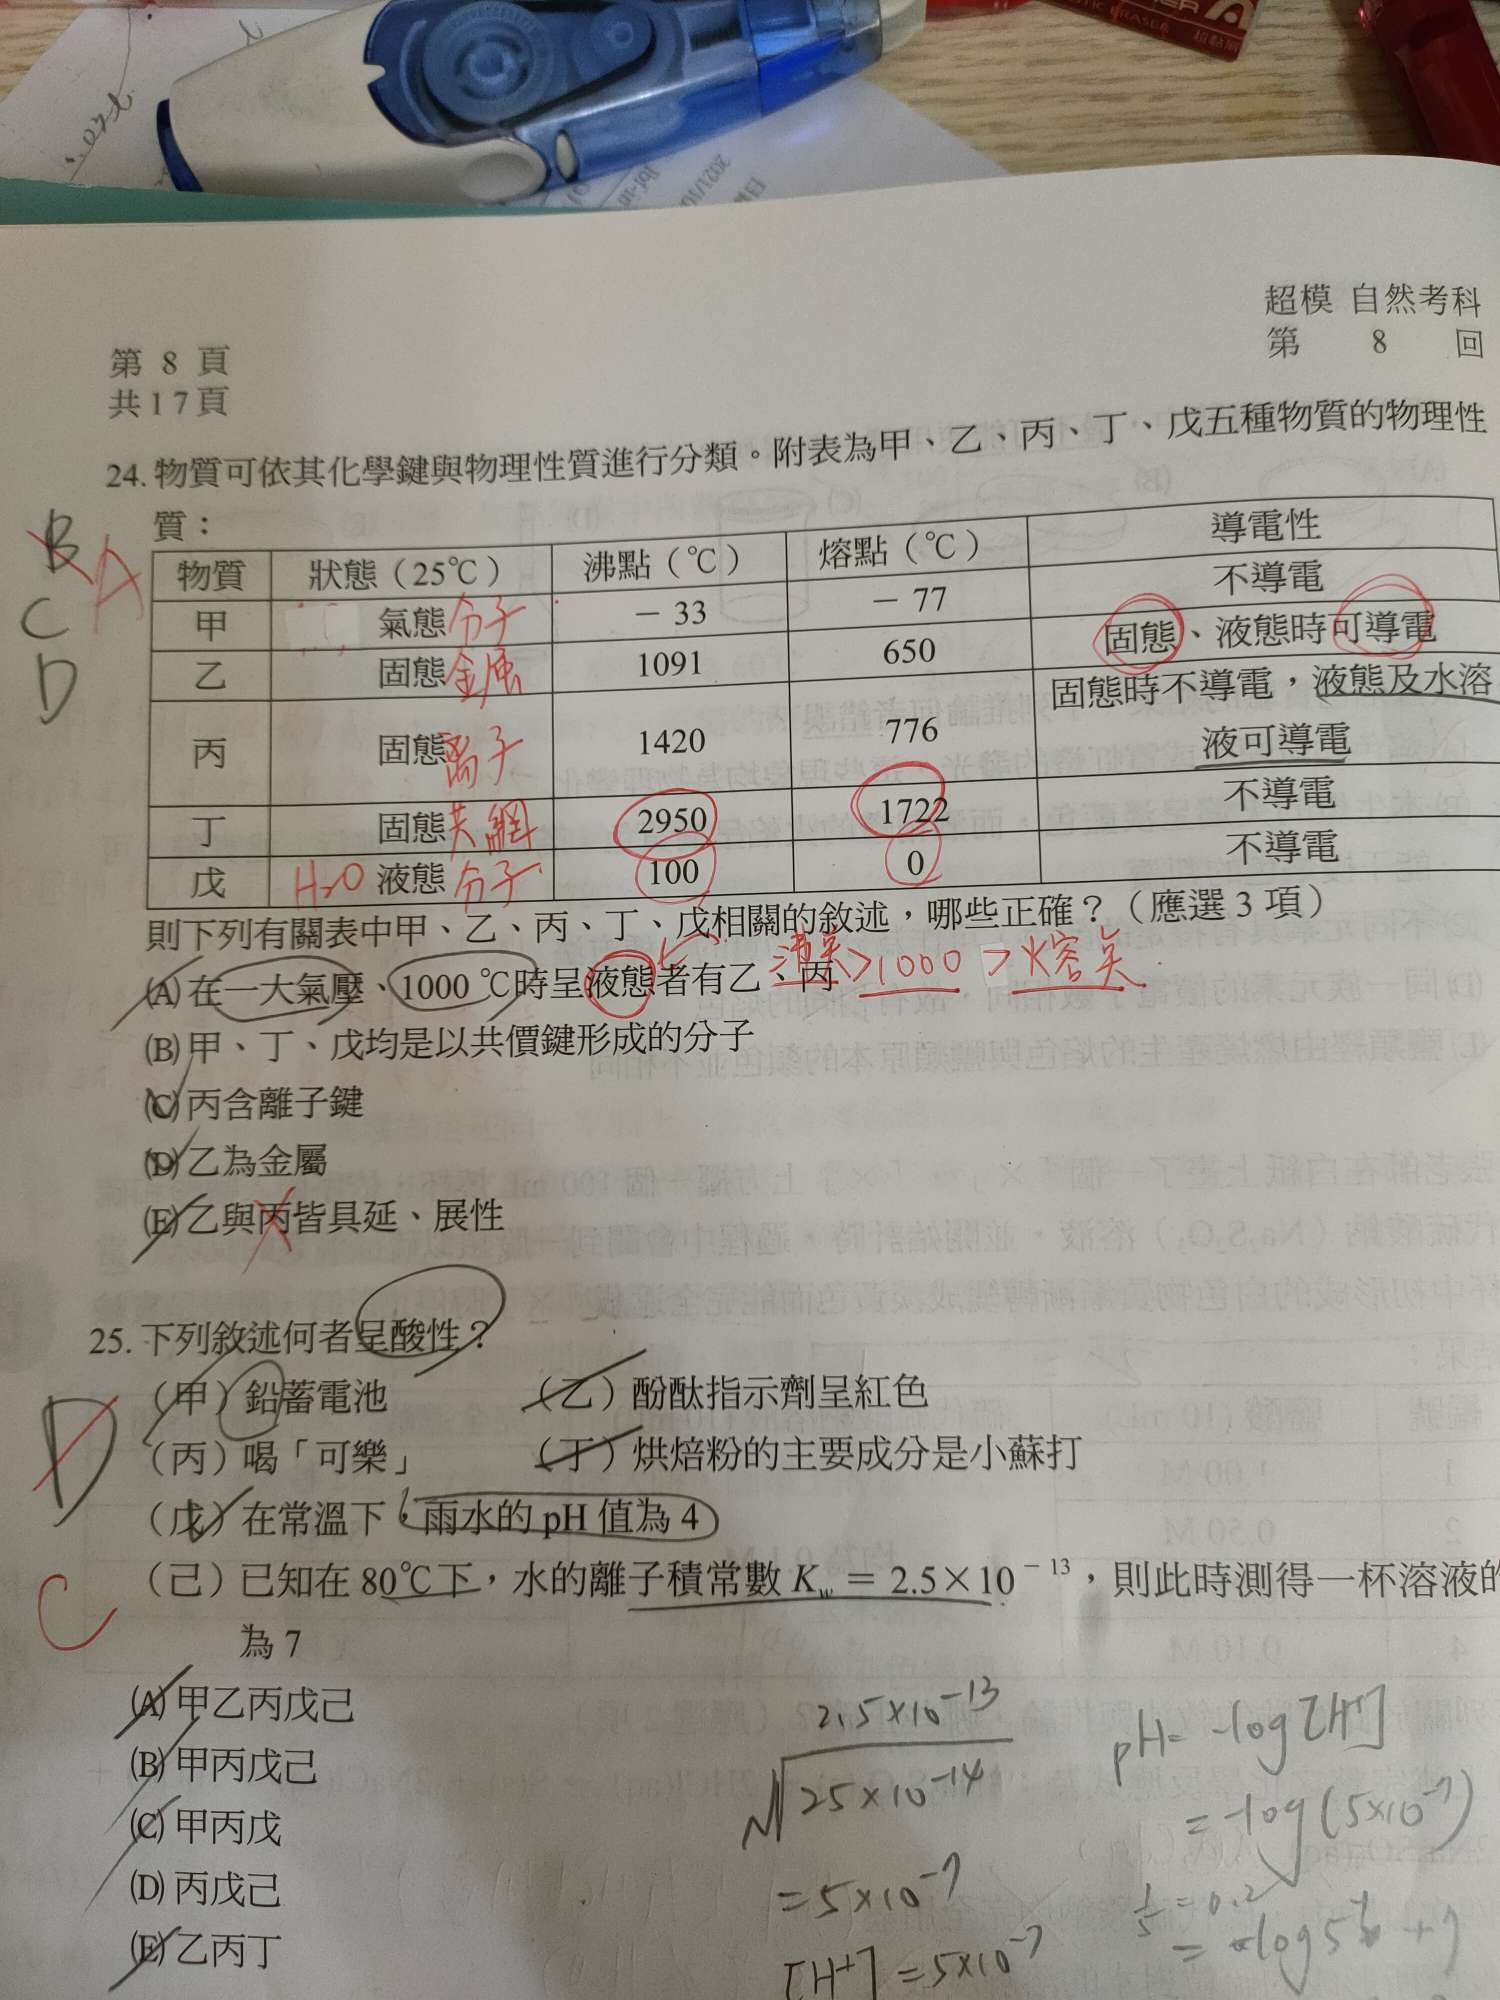 超模 自然考科
第 8 回
第 8 頁
共17頁
24. 物質可依其化學鍵與物理性質進行分類。附表為甲、乙、丙、丁、戊五種物質的物理性
質：
B A
C
D
物質 狀態（25℃） 沸點（℃） 熔點（℃） 導電性
甲 氣態 分子 －33 －77 不導電
乙 固態 金属 1091 650 固態、液態時可導電
丙 固態 离子 1420 776 固態時不導電，液態及水溶
液可導電
丁 固態 共網 2950 1722 不導電
戊 H2O 液態 分子 100 0 不導電
則下列有關表中甲、乙、丙、丁、戊相關的敘述，哪些正確？（應選 3 項）
(A) 在一大氣壓、1000 ℃時呈液態者有乙、丙
沸点>1000>熔点
(B) 甲、丁、戊均是以共價鍵形成的分子
(C) 丙含離子鍵
(D) 乙為金屬
(E) 乙與丙皆具延、展性
25. 下列敘述何者呈酸性？
（甲）鉛蓄電池 （乙）酚酞指示劑呈紅色
D
（丙）喝「可樂」 （丁）烘焙粉的主要成分是小蘇打
（戊）在常溫下，雨水的 pH 值為 4
C
（己）已知在 80℃下，水的離子積常數 Kw ＝ 2.5×10－13，則此時測得一杯溶液的
為 7
(A) 甲乙丙戊己
(B) 甲丙戊己
(C) 甲丙戊
(D) 丙戊己
(E) 乙丙丁
2.5×10-13
√25×10-14
=5×10-7
[H+]=5×10-7
pH=-log[H+]
=-log(5×10-7)
1/5=0.2